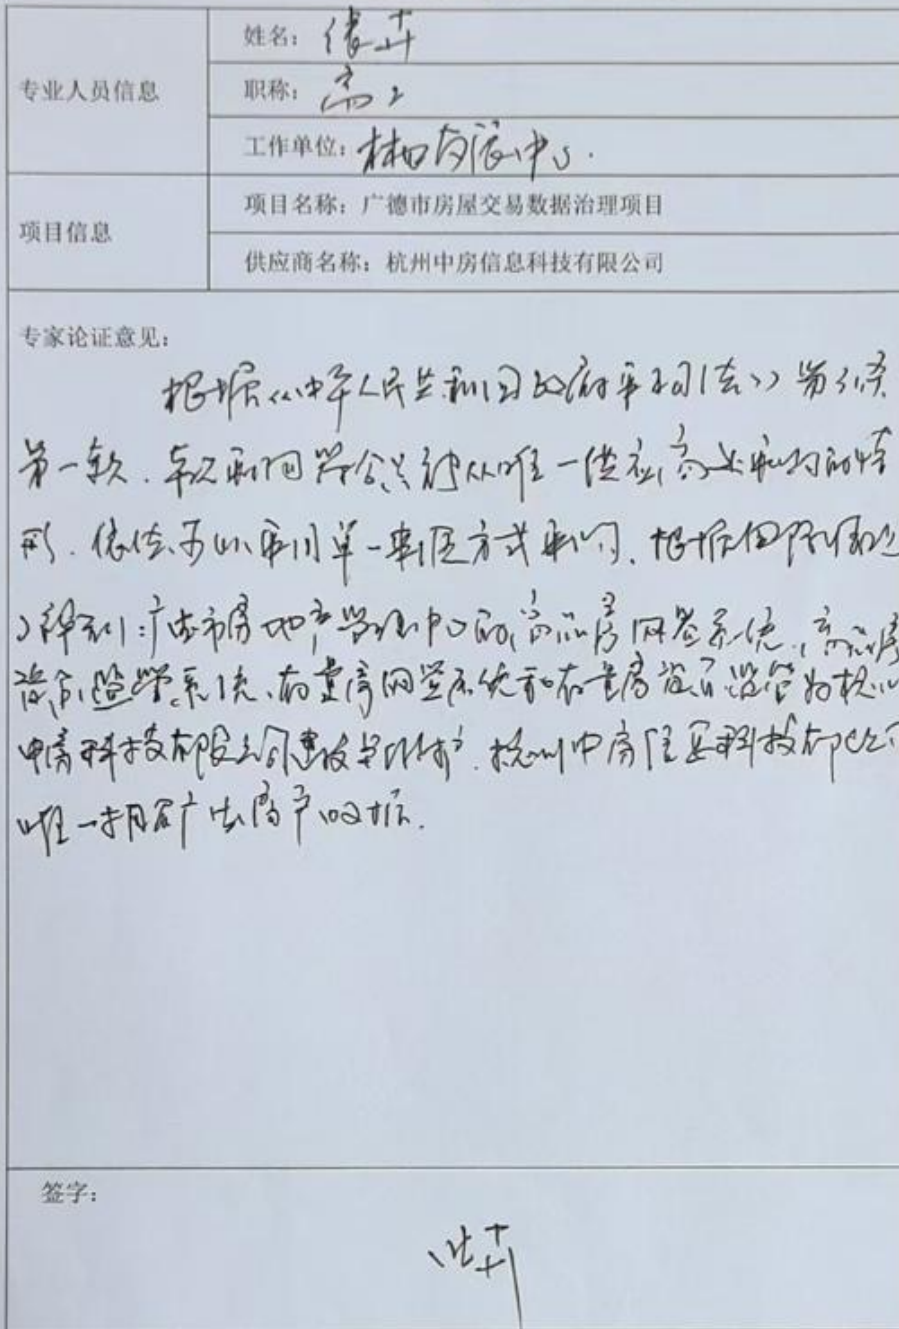 专业人员信息
姓名：
职称：高工
工作单位：
项目信息
项目名称：广德市房屋交易数据治理项目
供应商名称：杭州中房信息科技有限公司
专家论证意见：
根据《中华人民共和国政府采购法》第31条
第一款.本次采购符合只能从唯一供应商处采购的情
形.依法可以采用单一来源方式采购.根据
了解到:广德市房地产管理中心的商品房网签系统、商品房
资金监管系统、存量房网签系统和存量房资金监管为杭州
中房科技有限公司建设与维护.杭州中房信息科技有限公司
唯一拥有广德房产数据.
签字：